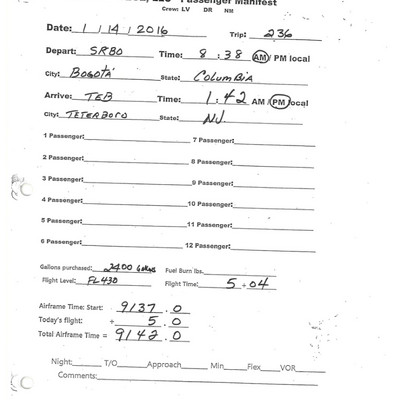 Passenger Manifest
Crew: LV DR NM
Date: 1/14/2016 Trip: 236
Depart: SRBO Time: 8:38 AM/PM local
City: Bogotá State: Columbia
Arrive: TEB Time: 1:42 AM/PM local
City: TETERBORO State: NJ.
1 Passenger: 7 Passenger:
2 Passenger: 8 Passenger:
3 Passenger: 9 Passenger:
4 Passenger: 10 Passenger:
5 Passenger: 11 Passenger:
6 Passenger: 12 Passenger:
Gallons purchased: 2400 Fuel Burn lbs.
Flight Level: FL430 Flight Time: 5:04
Airframe Time: Start: 9137.0
Today's flight: + 5.0
Total Airframe Time = 9142.0
Night: T/O Approach Min Flex VOR
Comments: